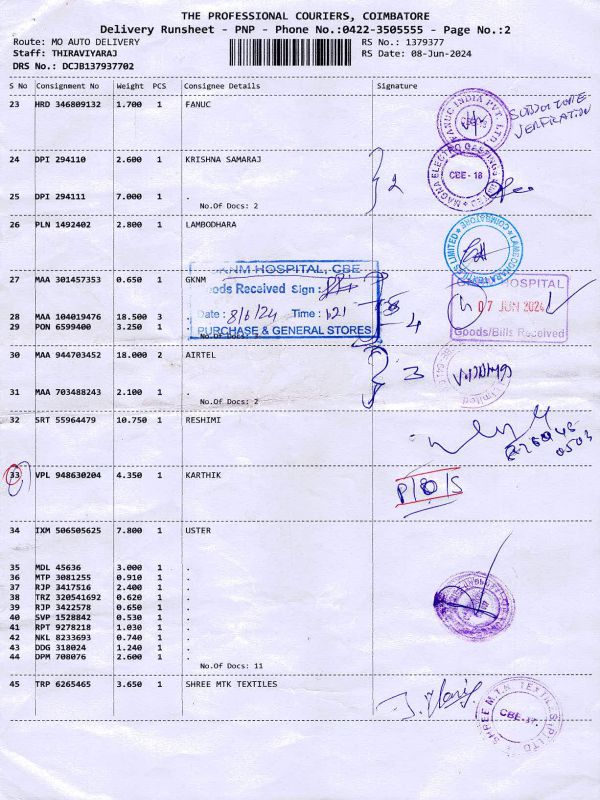 THE PROFESSIONAL COURIERS, COIMBATORE
Delivery Runsheet - PNP - Phone No.:0422-3505555 - Page No.:2
Route: MO AUTO DELIVERY
RS No.: 1379377
Staff: THIRAVIYARAJ
RS Date: 08-Jun-2024
DRS No.: DCJB137937702
S No Consignment No Weight PCS Consignee Details Signature
23 HRD 346809132 1.700 1 FANUC
FANUC INDIA PVT. LTD
24 DPI 294110 2.600 1 KRISHNA SAMARAJ
MAGNA ELECTRO CASTINGS LIMITED
CBE-18
2
25 DPI 294111 7.000 1 .
No.Of Docs: 2
26 PLN 1492402 2.800 1 LAMBODHARA
LAMBODHARA TEXTILES LIMITED
COIMBATORE
27 MAA 301457353 0.650 1 GKNM
GKNM HOSPITAL, CBE
Goods Received Sign :
Date : 8/6/24 Time : 121
PURCHASE & GENERAL STORES
HOSPITAL
07 JUN 2024
Goods/Bills Received
28 MAA 104019476 18.500 3 .
29 PON 6599400 3.250 1 .
No.Of Docs: 3
4
30 MAA 944703452 18.000 2 AIRTEL
3
31 MAA 703488243 2.100 1 .
No.Of Docs: 2
32 SRT 55964479 10.750 1 RESHIMI
33 VPL 948630204 4.350 1 KARTHIK
34 IXM 506505625 7.800 1 USTER
35 MDL 45636 3.000 1 .
36 MTP 3081255 0.910 1 .
37 RJP 3417516 2.400 1 .
38 TRZ 320541692 0.620 1 .
39 RJP 3422578 0.650 1 .
40 SVP 1528842 0.530 1 .
41 RPT 9278218 1.030 1 .
42 NKL 8233693 0.740 1 .
43 DDG 318024 1.240 1 .
44 DPM 708076 2.600 1 .
No.Of Docs: 11
45 TRP 6265465 3.650 1 SHREE MTK TEXTILES
SHREE M.T.K TEXTILES (P) LTD
CBE-17.